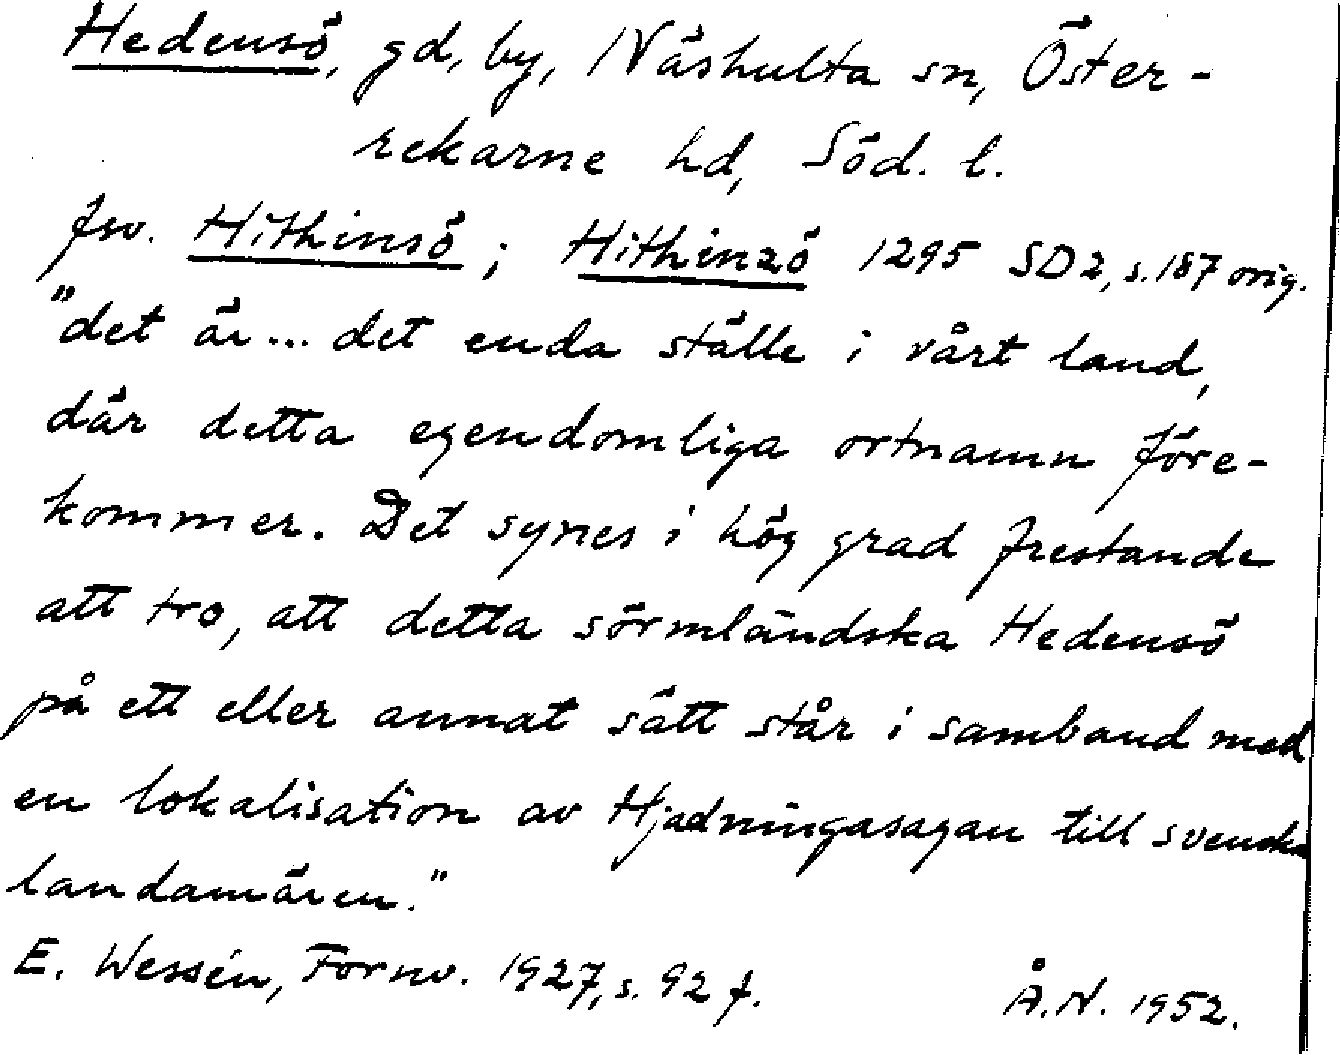 Hedensö, gd, by, Näshulta sn, Öster-
rekarne hd, Söd. l.
fsv. Hithinsö; Hithinzö 1295 SD 2, s. 187 orig.
"det är... det enda ställe i vårt land,
där detta egendomliga ortnamn före-
kommer. Det synes i hög grad frestande
att tro, att detta sörmländska Hedensö
på ett eller annat sätt står i samband med
en lokalisation av Hjadningasagan till svenska
landamären."
E. Wessén, Fornv. 1927, s. 92 f.
Å.N. 1952.